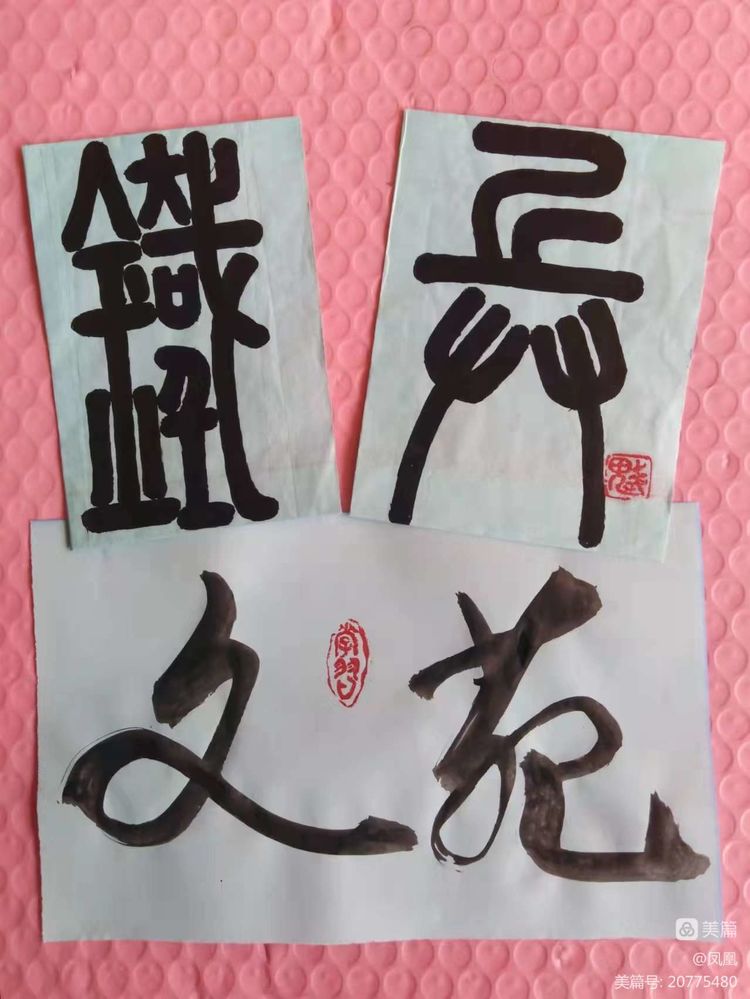 鐵兵
文苑
学習
美篇
@凤凰
美篇号: 20775480